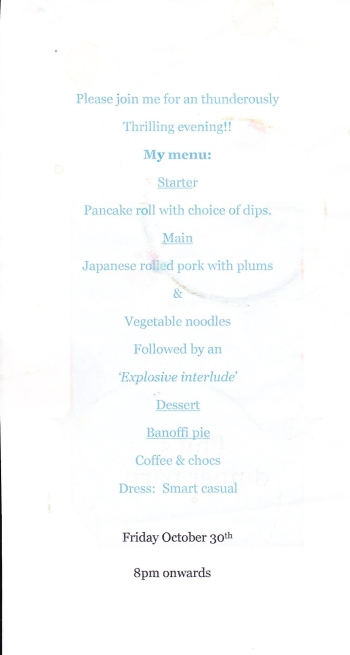 Please join me for an thunderously
Thrilling evening!!
My menu:
Starter
Pancake roll with choice of dips.
Main
Japanese rolled pork with plums
&
Vegetable noodles
Followed by an
‘Explosive interlude’
Dessert
Banoffi pie
Coffee & chocs
Dress: Smart casual
Friday October 30th
8pm onwards